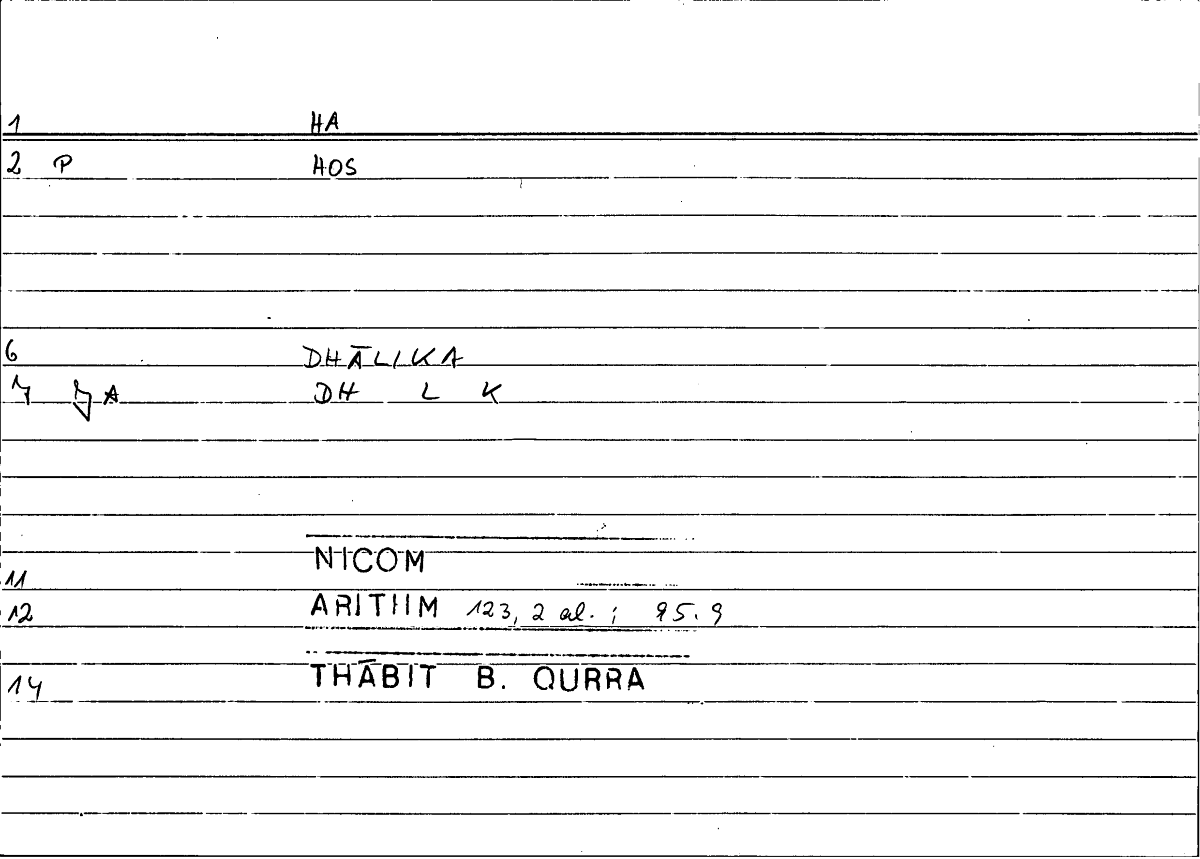 1 HA
2 P HOS
6 DHĀLIKA
7 A DH L K
NICOM
11
12 ARITHM 123, 2 al. ; 95.9
14 THĀBIT B. QURRA